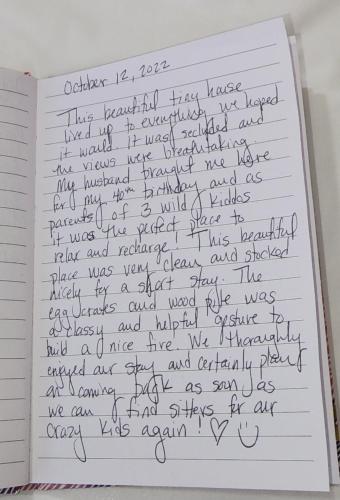 October 12, 2022
This beautiful tiny house
lived up to everything we hoped
it would. It was secluded and
the views were breathtaking.
My husband brought me here
for my 40th birthday and as
parents of 3 wild kiddos
it was the perfect place to
relax and recharge! This beautiful
place was very clean and stocked
nicely for a short stay. The
egg crates and wood pile was
a classy and helpful gesture to
build a nice fire. We thoroughly
enjoyed our stay and certainly plan
on coming back as soon as
we can find sitters for our
crazy kids again! ♡ ☺